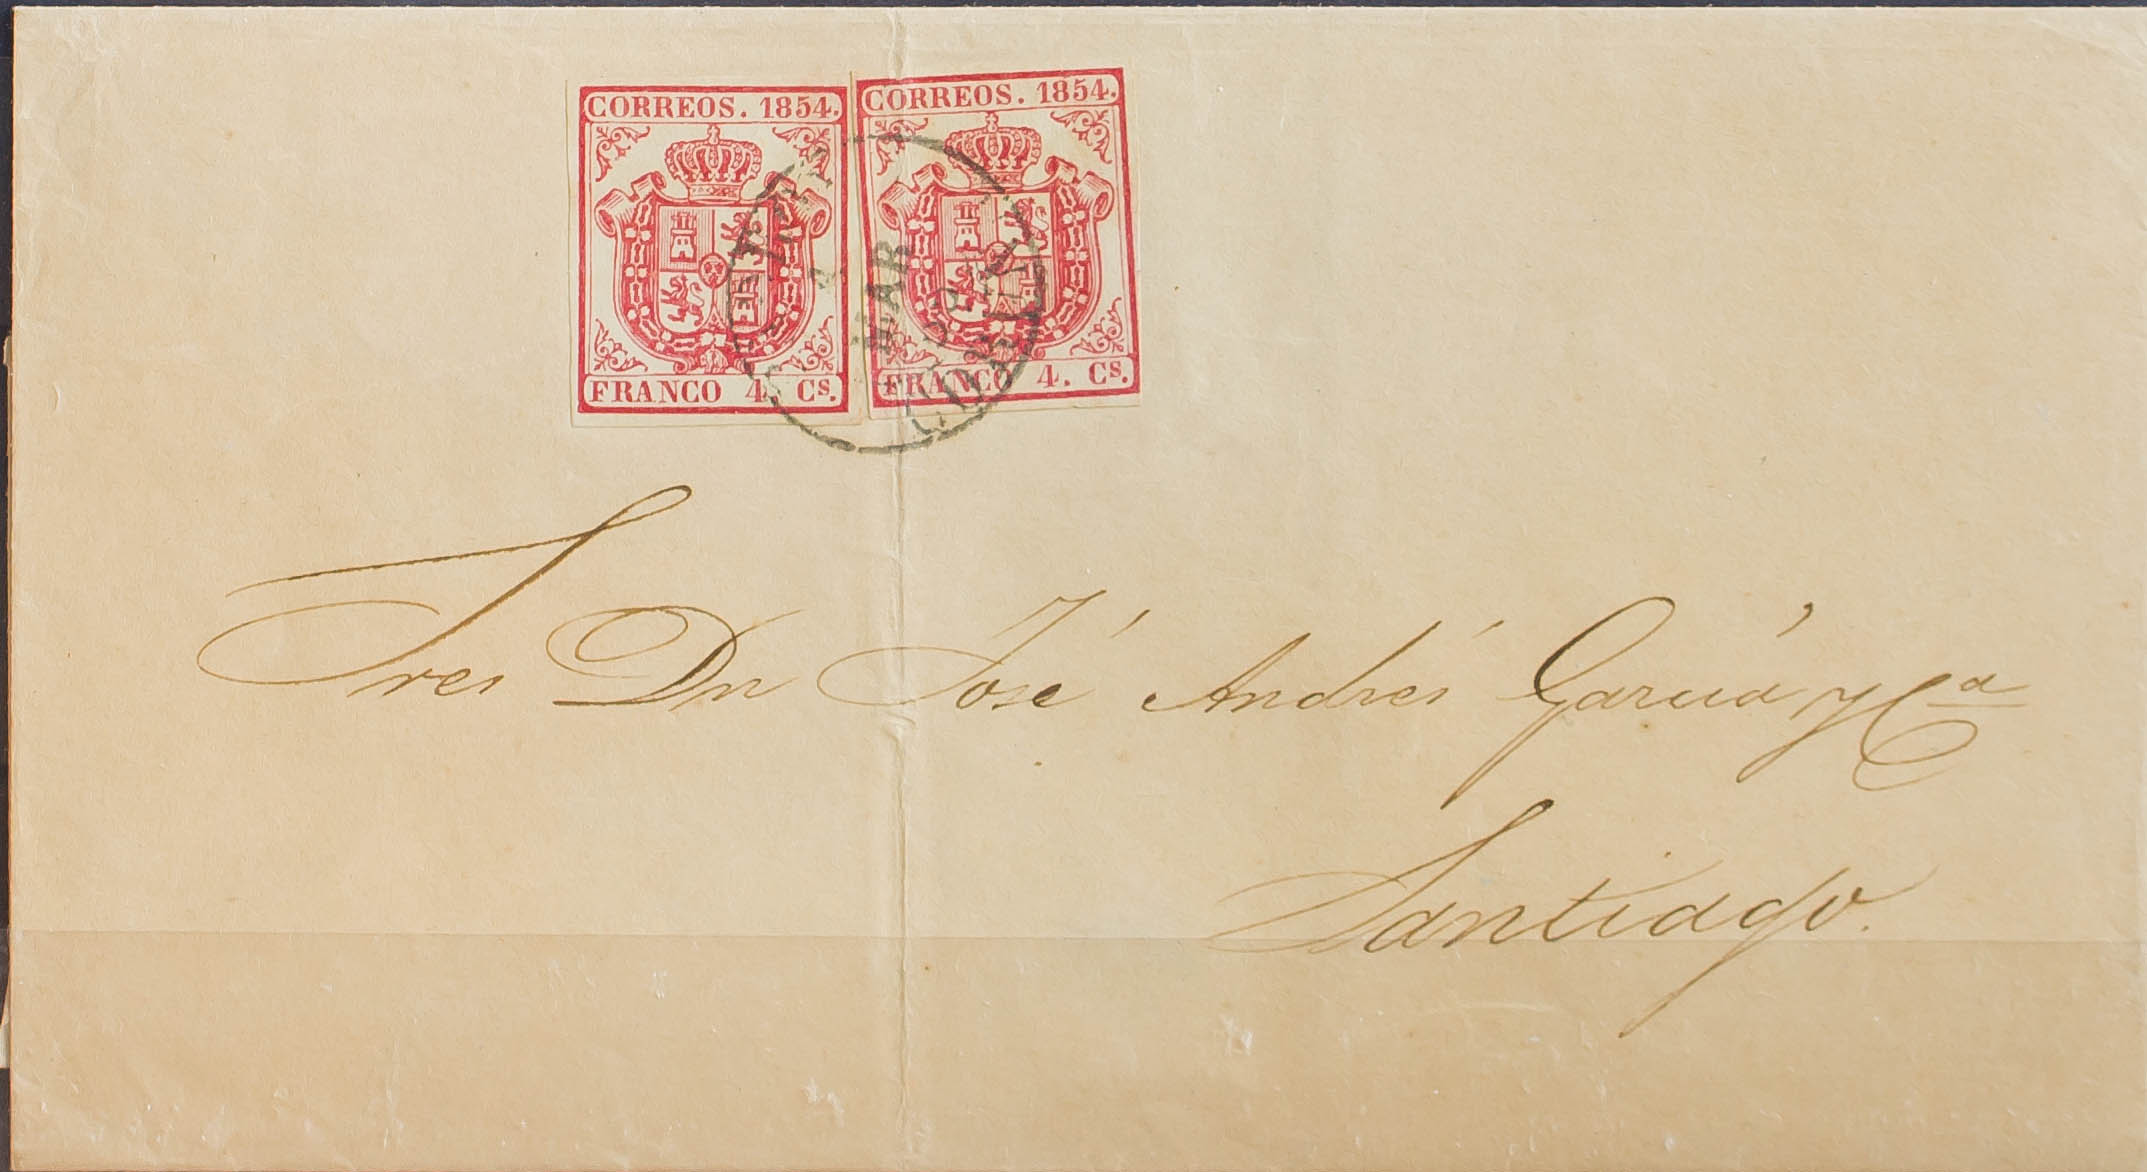 CORREOS. 1854.
FRANCO 4 Cs.
CORREOS. 1854.
FRANCO 4. Cs.
MAR
Sres Dn José Andrés García y Cª
Santiago.